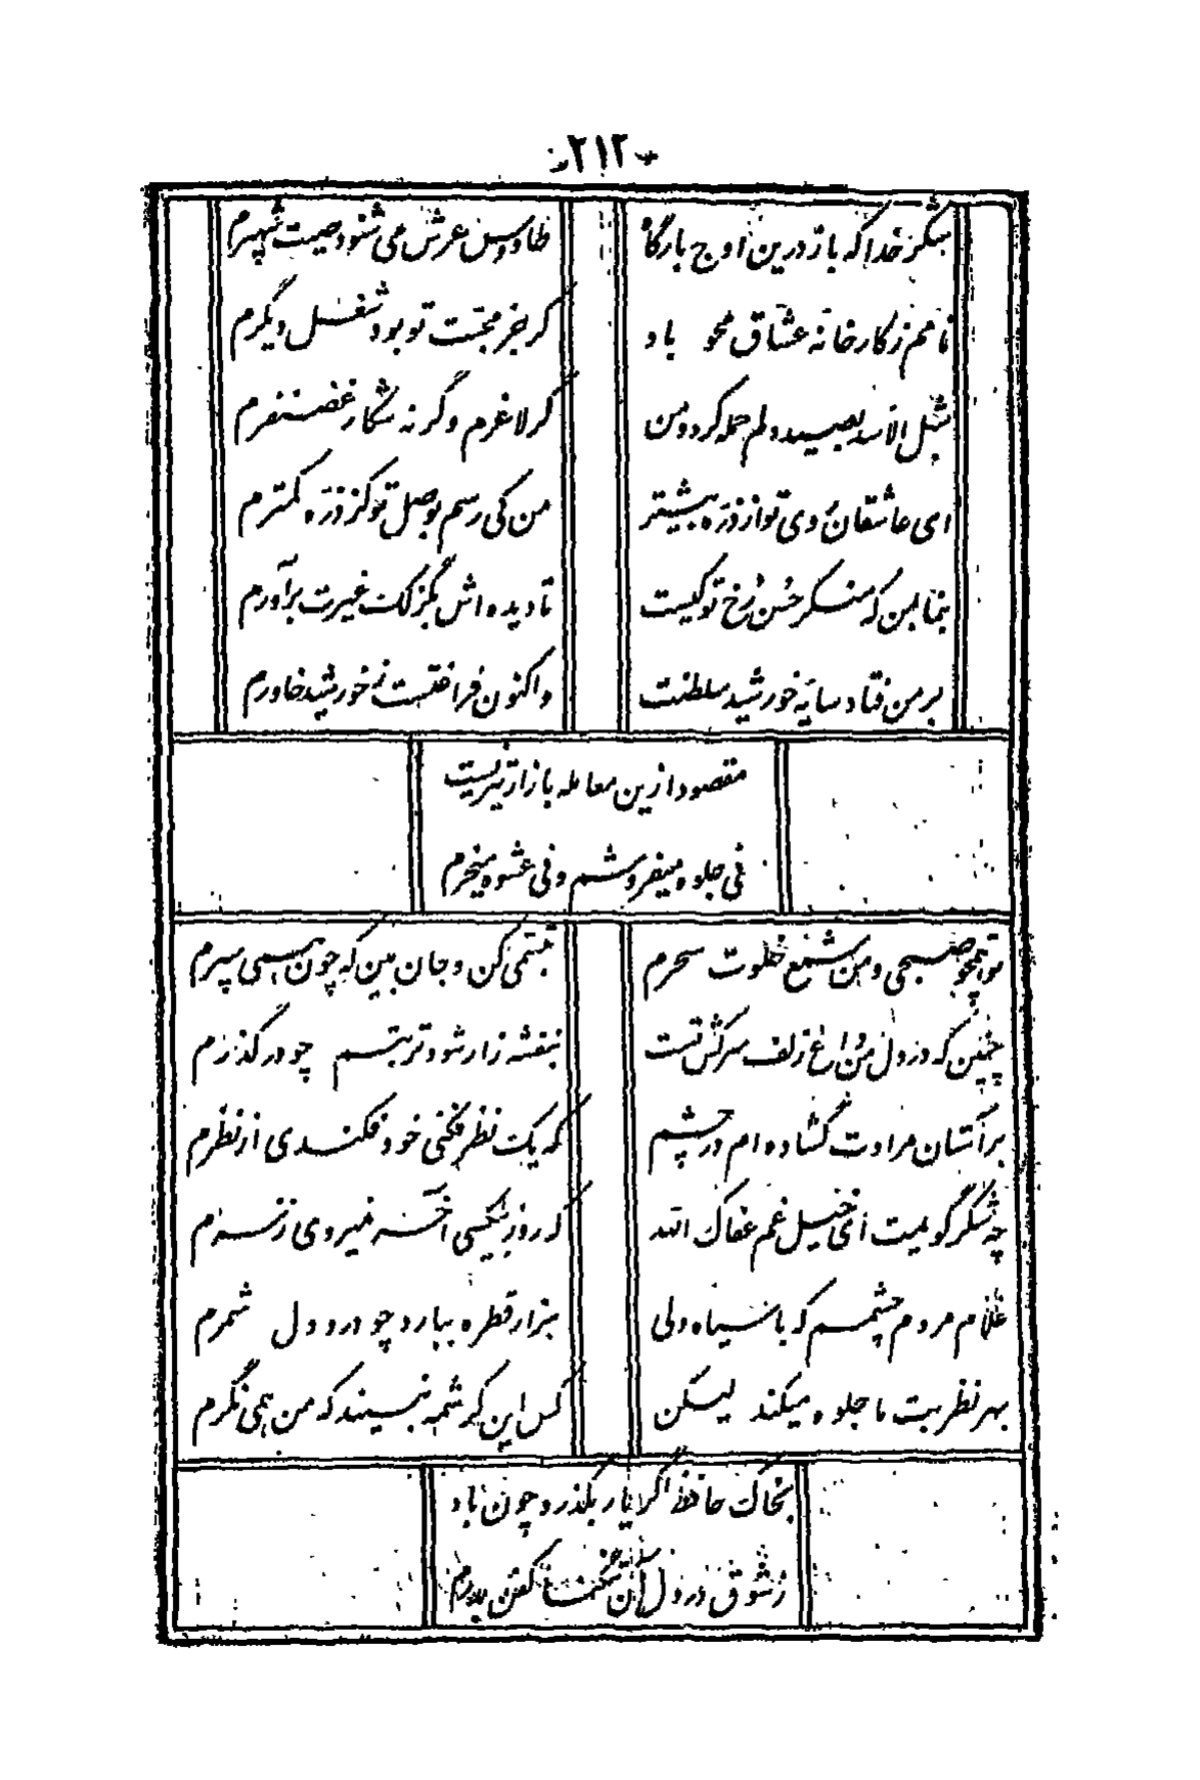 ۲۱۲
شکر خدا که باز درین اوج بارگاه
طاووس عرش می شنود صیت شهپرم
نامم ز کارخانه عشاق محو باد
گر جز محبت تو بود شغل دیگرم
شبل الاسد بصید دلم حمله کرد و من
گر لاغرم وگرنه شکار غضنفرم
ای عاشقان روی تو از ذره بیشتر
من کی رسم بوصل تو کز ذره کمترم
بنما بمن که منکر حسن رخ تو کیست
تا دیده اش بگزلک غیرت برآورم
بر من فتاد سایه خورشید سلطنت
و اکنون فراغتست ز خورشید خاورم
مقصود ازین معامله بازار تیزیست
نی جلوه میفروشم و نی عشوه میخرم
تو همچو صبحی و من شمع خلوت سحرم
تبسمی کن و جان بین که چون همی سپرم
چنین که در دل من داغ زلف سرکش تست
بنفشه زار شود تربتم چو درگذرم
بر آستان مرادت گشاده ام در چشم
که یک نظر فکنی خود فکندی از نظرم
چه شکر گویمت ای خیل غم عفاک الله
که روز بیکسی آخر نمیروی ز سرم
غلام مردم چشمم که با سیاه دلی
هزار قطره ببارد چو درد دل شمرم
بهر نظر بت ما جلوه میکند لیکن
کس این کرشمه نبیند که من همی نگرم
بخاک حافظ اگر یار بگذرد چون باد
ز شوق در دل آن تنگنا کفن بدرم